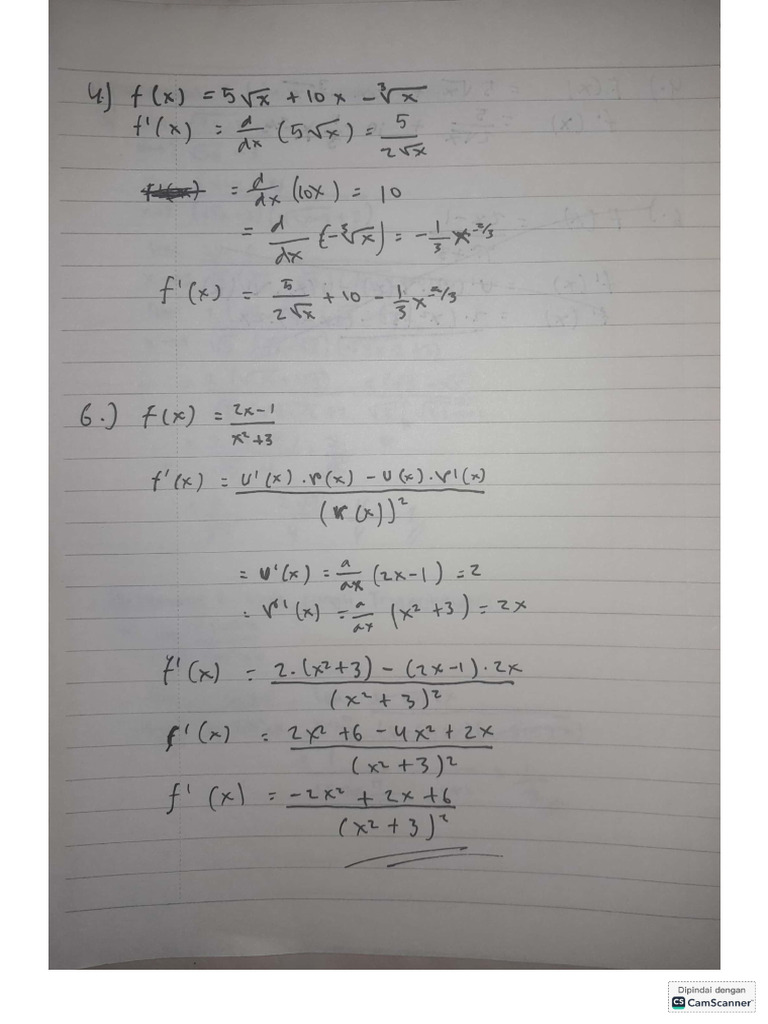 4.) f(x) = 5√x + 10x - ³√x
f'(x) = d/dx (5√x) = 5/2√x
= d/dx (10x) = 10
= d/dx (-³√x) = -1/3 x^-2/3
f'(x) = 5/2√x + 10 - 1/3 x^-2/3
6.) f(x) = 2x-1/x²+3
f'(x) = u'(x) . v(x) - u(x) . v'(x)/(v(x))²
= u'(x) = d/dx (2x-1) = 2
= v'(x) = d/dx (x²+3) = 2x
f'(x) = 2.(x²+3) - (2x-1).2x/(x²+3)²
f'(x) = 2x² + 6 - 4x² + 2x/(x²+3)²
f'(x) = -2x² + 2x + 6/(x²+3)²
Dipindai dengan
CS CamScanner